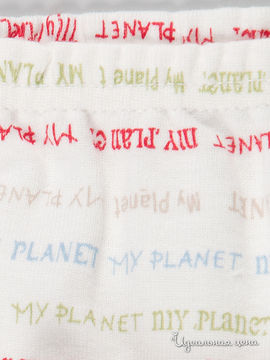 My PLANET
MY PLANET MY Planet My Planet
MY PLANET MY PLANET MY PLANET
My planet
PLANET MY PLANET
MY PLANET MY PLANET
Идеальная цена